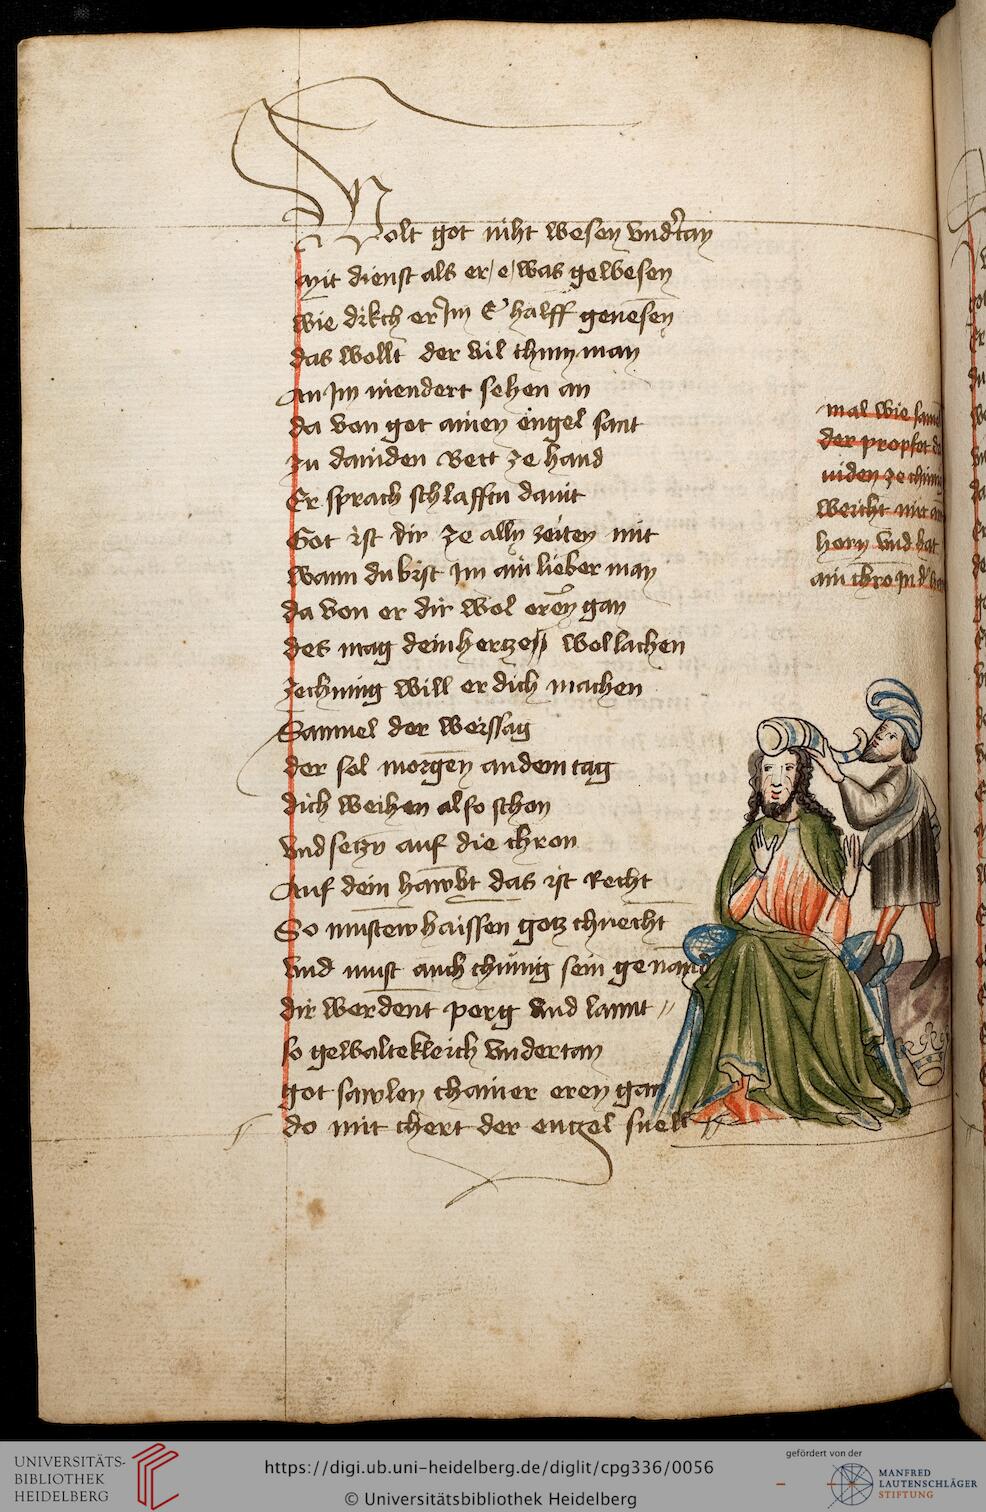 Wolt got niht wesen vnd'tan
mit dienst als er / e / was gewesen
wie dikch er Im E halff genesen
das wollt der vil thum man
An Im niendert sehen an
da von got ainen engel sant
zu dauiden Bett ze hand
Er sprach schlafftu dauit
Got ist dir ze alln zeiten mit
wann du bist Im ain lieber man
da von er dir wol eren gan
des mag dein hertze wol lachen
ze chunig will er dich machen
Samuel der weissag
der sol morgen an dem tag
dich weihen also schon
vnd setzn auf die chron
Auf dein hawbt das ist Recht
So mustew haissen gotz chnecht
vnd must auch chünig sein genand
dir werdent perg vnd lannt
so gewaltekleich vndertan
got sawlen chainer eren gan
do mit chert der engel snell
mal wie
der prophet
ze
weicht mit
horn vnd hat
ain chron In d'
UNIVERSITÄTS-
BIBLIOTHEK
HEIDELBERG
https://digi.ub.uni-heidelberg.de/diglit/cpg336/0056
© Universitätsbibliothek Heidelberg
gefördert von der
MANFRED
LAUTENSCHLÄGER
STIFTUNG